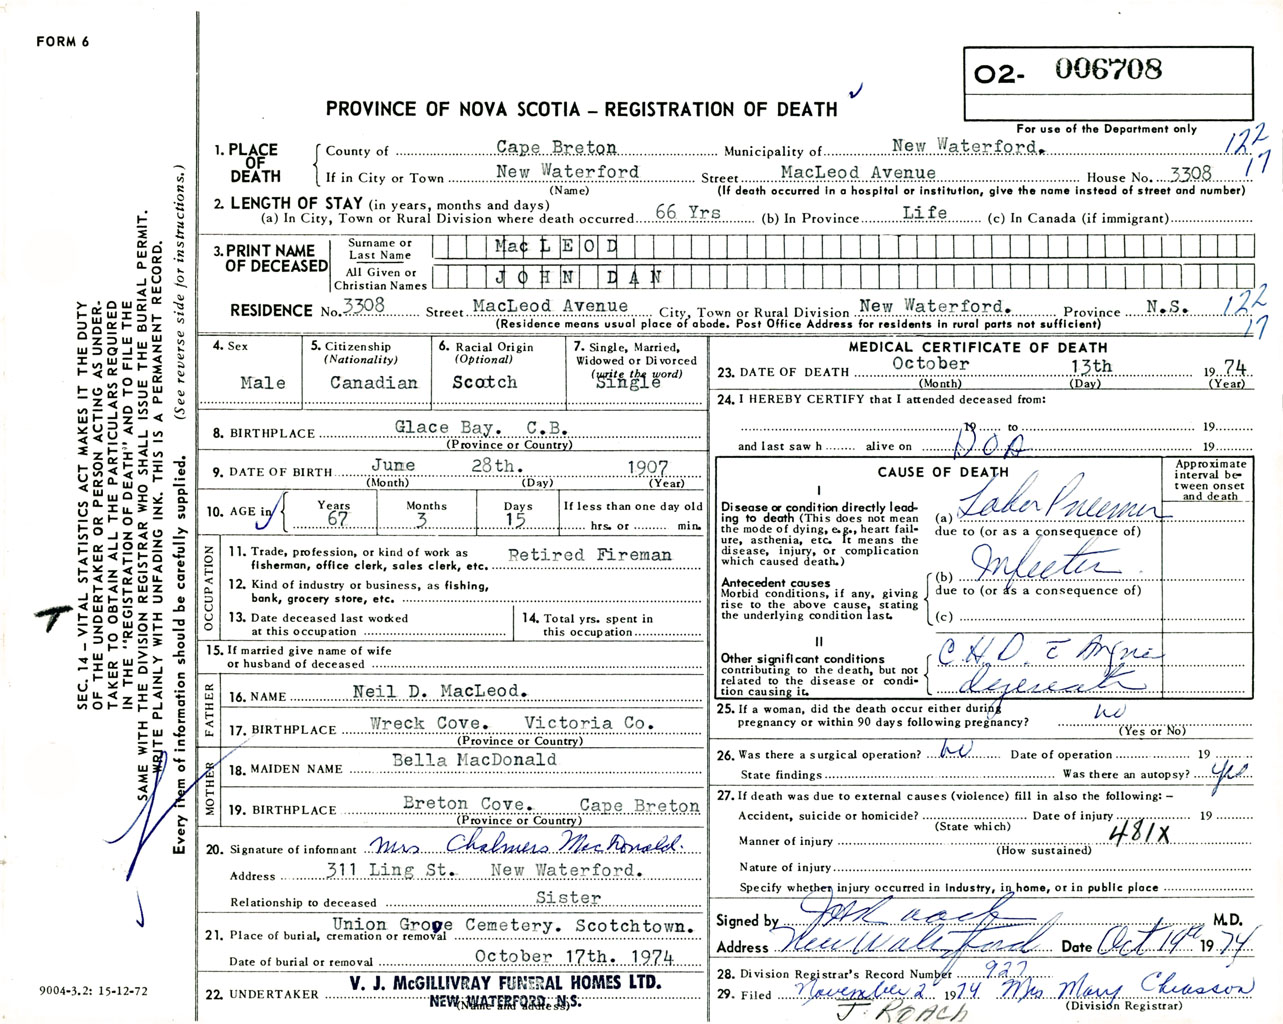 FORM 6
O2- 006708
PROVINCE OF NOVA SCOTIA – REGISTRATION OF DEATH
For use of the Department only
1. PLACE OF DEATH
County of Cape Breton Municipality of New Waterford. 122
If in City or Town New Waterford Street MacLeod Avenue House No. 3308 17
(Name) (If death occurred in a hospital or institution, give the name instead of street and number)
2. LENGTH OF STAY (in years, months and days)
(a) In City, Town or Rural Division where death occurred 66 Yrs (b) In Province Life (c) In Canada (if immigrant)
3. PRINT NAME OF DECEASED
Surname or Last Name MacLEOD
All Given or Christian Names JOHN DAN
RESIDENCE No. 3308 Street MacLeod Avenue City, Town or Rural Division New Waterford. Province N.S. 122
(Residence means usual place of abode. Post Office Address for residents in rural parts not sufficient) 17
4. Sex
Male
5. Citizenship
(Nationality)
Canadian
6. Racial Origin
(Optional)
Scotch
7. Single, Married,
Widowed or Divorced
(write the word)
Single
8. BIRTHPLACE Glace Bay. C.B.
(Province or Country)
9. DATE OF BIRTH June 28th. 1907
(Month) (Day) (Year)
10. AGE in
Years Months Days If less than one day old
67 3 15 hrs. or min.
OCCUPATION
11. Trade, profession, or kind of work as
fisherman, office clerk, sales clerk, etc. Retired Fireman
12. Kind of industry or business, as fishing,
bank, grocery store, etc.
13. Date deceased last worked
at this occupation
14. Total yrs. spent in
this occupation
15. If married give name of wife
or husband of deceased
FATHER
16. NAME Neil D. MacLeod.
17. BIRTHPLACE Wreck Cove. Victoria Co.
(Province or Country)
MOTHER
18. MAIDEN NAME Bella MacDonald
19. BIRTHPLACE Breton Cove. Cape Breton
(Province or Country)
20. Signature of informant Mrs Chalmers MacDonald.
Address 311 Ling St. New Waterford.
Relationship to deceased Sister
21. Place of burial, cremation or removal Union Grove Cemetery. Scotchtown.
Date of burial or removal October 17th. 1974
22. UNDERTAKER V. J. McGILLIVRAY FUNERAL HOMES LTD.
NEW WATERFORD, N.S.
(Name and address)
MEDICAL CERTIFICATE OF DEATH
23. DATE OF DEATH October 13th 19 74
(Month) (Day) (Year)
24. I HEREBY CERTIFY that I attended deceased from:
19 to 19
and last saw h alive on DOA 19
CAUSE OF DEATH
Approximate interval between onset and death
I
Disease or condition directly lead-
ing to death (This does not mean
the mode of dying, e.g., heart fail-
ure, asthenia, etc. It means the
disease, injury, or complication
which caused death.)
(a) Lobar
due to (or as a consequence of)
Antecedent causes
Morbid conditions, if any, giving
rise to the above cause, stating
the underlying condition last.
(b)
due to (or as a consequence of)
(c)
II
Other significant conditions
contributing to the death, but not
related to the disease or condi-
tion causing it.
C.H.D.
25. If a woman, did the death occur either during
pregnancy or within 90 days following pregnancy? no
(Yes or No)
26. Was there a surgical operation? no Date of operation 19
State findings Was there an autopsy? yes
27. If death was due to external causes (violence) fill in also the following: –
Accident, suicide or homicide? Date of injury 19
(State which)
481X
Manner of injury
(How sustained)
Nature of injury
Specify whether injury occurred in industry, in home, or in public place
Signed by Roach M.D.
Address New Waterford Date Oct 19th 1974
28. Division Registrar's Record Number 927
29. Filed November 2 1974 Mrs Mary Chiasson
(Division Registrar)
J. ROACH
SEC. 14 – VITAL STATISTICS ACT MAKES IT THE DUTY
OF THE UNDERTAKER OR PERSON ACTING AS UNDER-
TAKER TO OBTAIN ALL THE PARTICULARS REQUIRED
IN THE "REGISTRATION OF DEATH" AND TO FILE THE
SAME WITH THE DIVISION REGISTRAR WHO SHALL ISSUE THE BURIAL PERMIT.
WRITE PLAINLY WITH UNFADING INK. THIS IS A PERMANENT RECORD.
Every item of information should be carefully supplied. (See reverse side for instructions.)
9004-3.2: 15-12-72